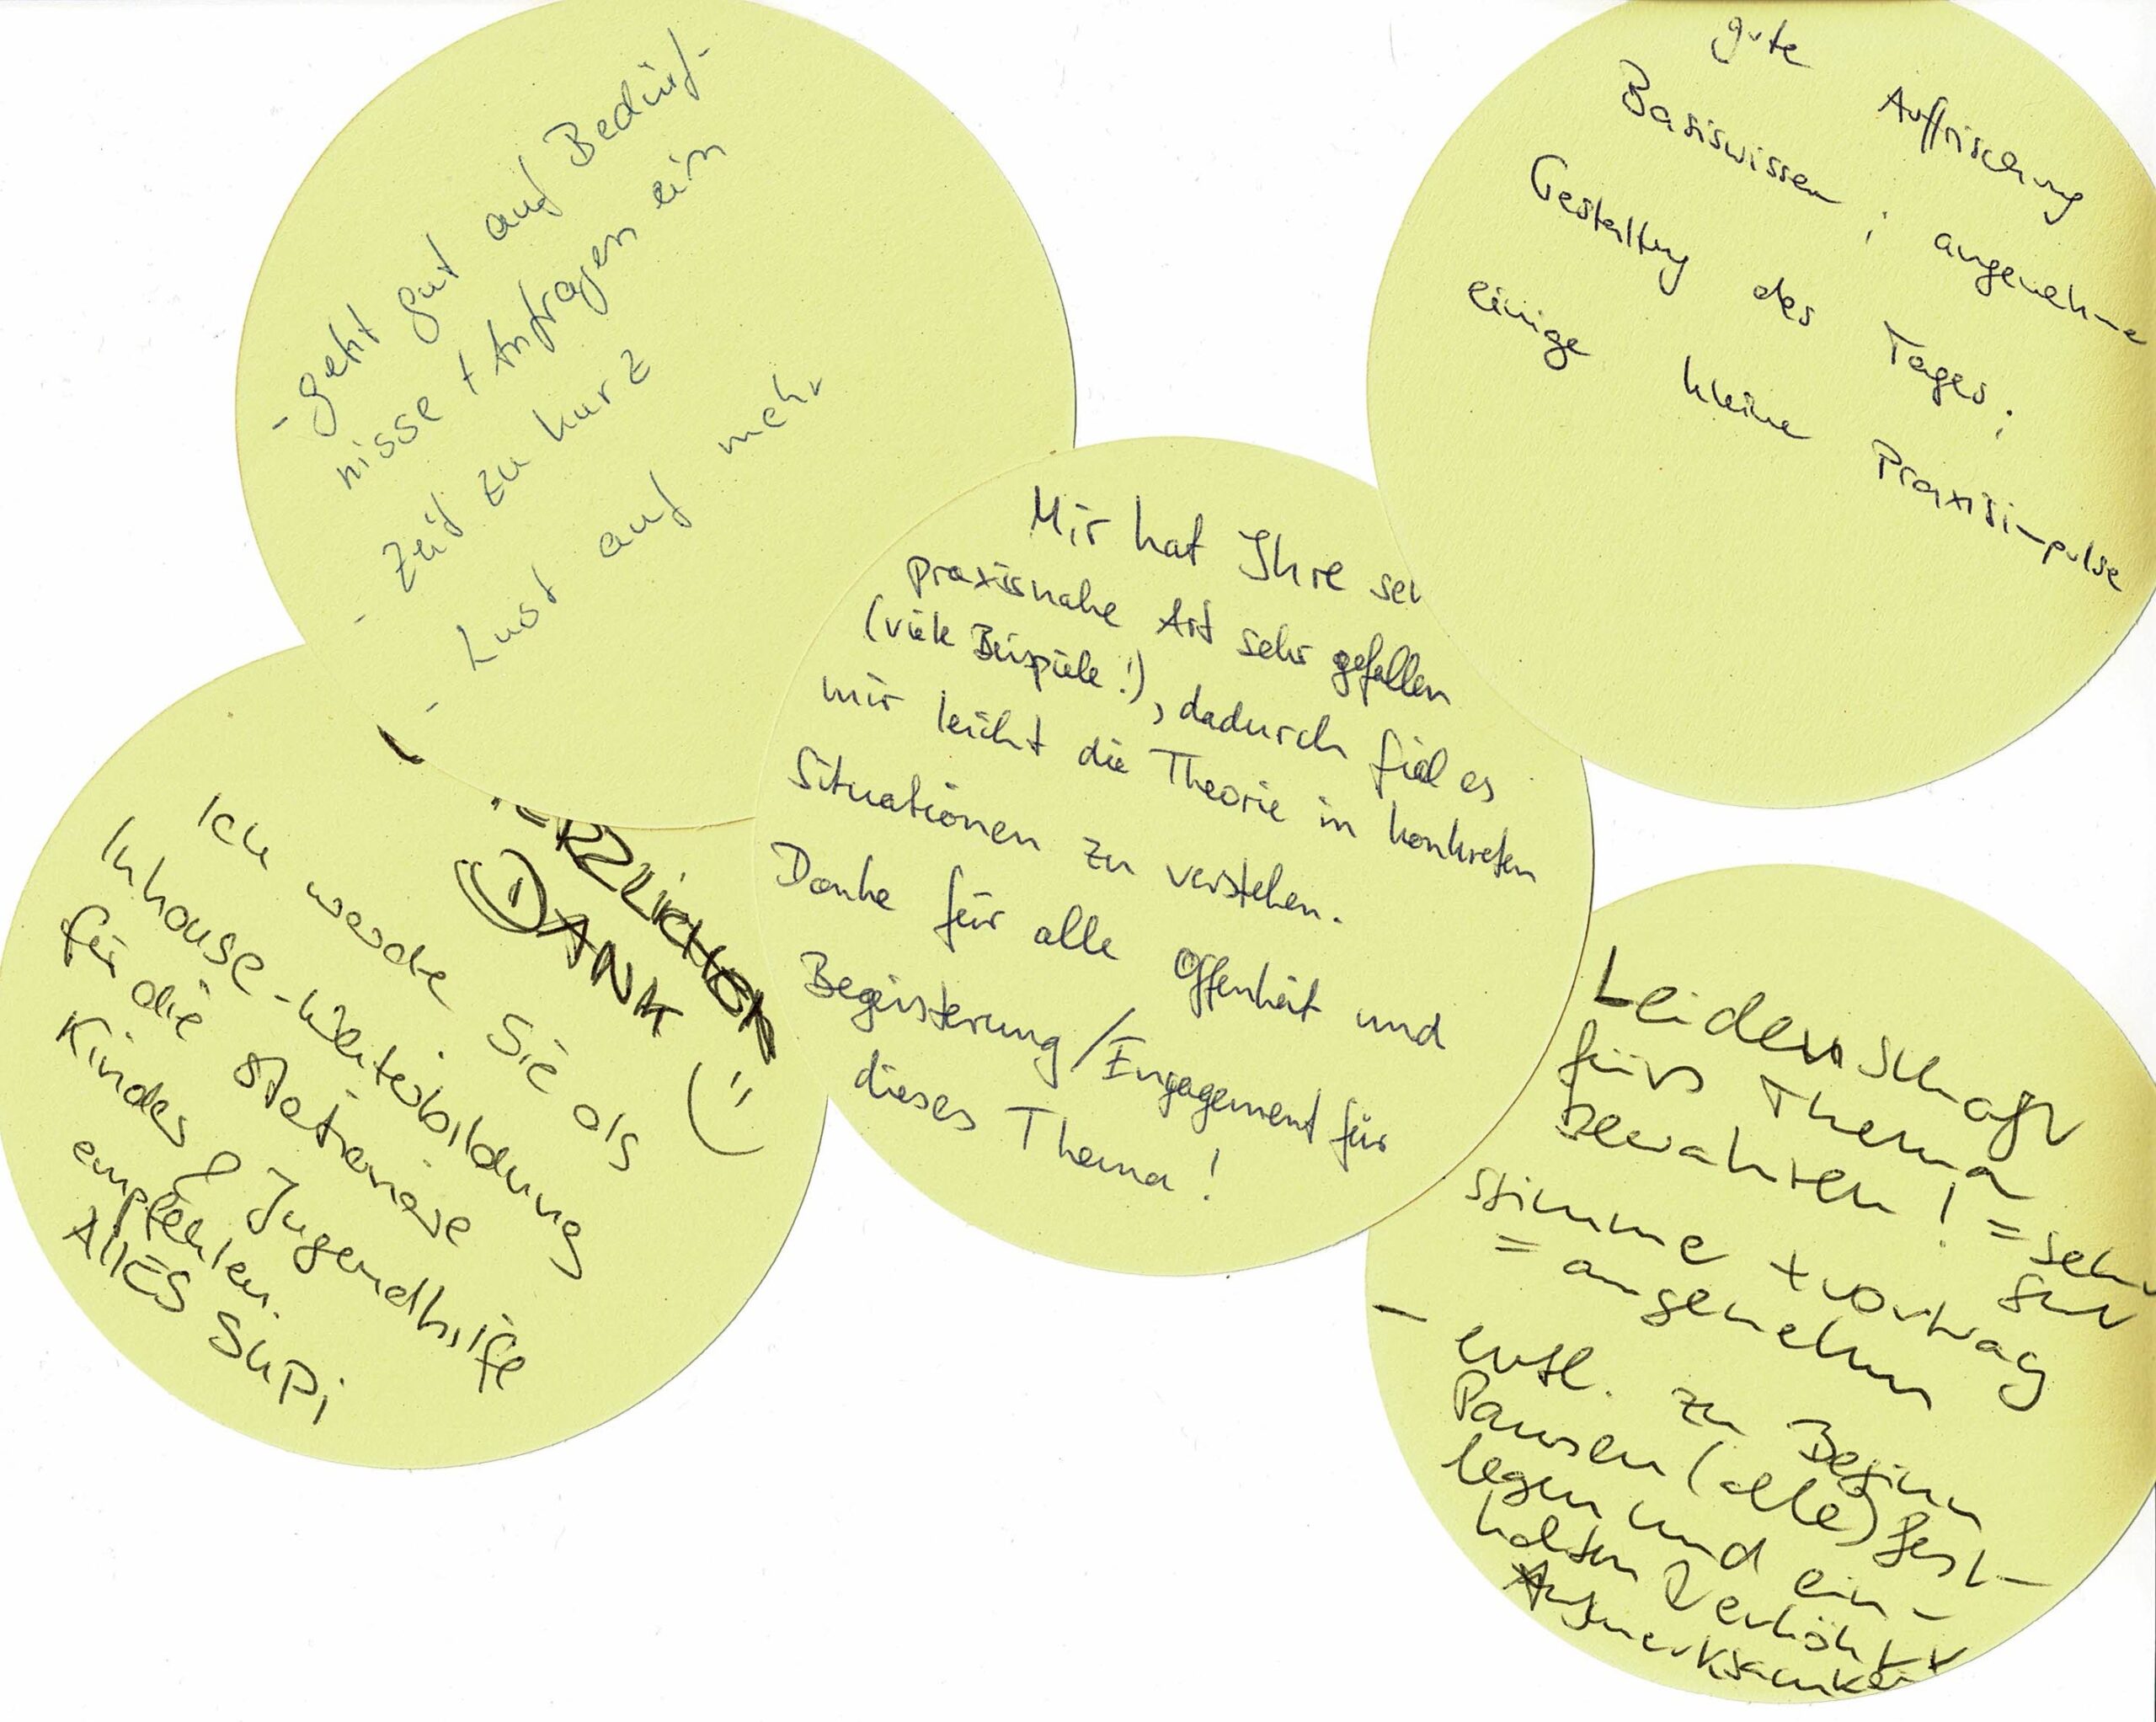 - geht gut auf Bedürf-
nisse + Anfragen ein
- Zeit zu kurz
- Lust auf mehr
gute Auffrischung
Basiswissen; angenehme
Gestaltung des Tages;
einige kleine Praxisimpulse
Mir hat Ihre
praxisnahe Art sehr gefallen
(viele Beispiele!), dadurch fiel es
mir leicht die Theorie in konkreten
Situationen zu verstehen.
Danke für alle Offenheit und
Begeisterung/Engagement für
dieses Thema!
Ich werde Sie als
Inhouse-Weiterbildung
für die stationäre
Kinder & Jugendhilfe
empfehlen.
AllES SUPi
DANK
Leidenschaft
fürs Thema
bewahren! = sehr
gut
Stimme + Vortrag
= angenehm
- evtl. zu Beginn
Pausen (alle) fest-
legen und ein-
halten erhöht